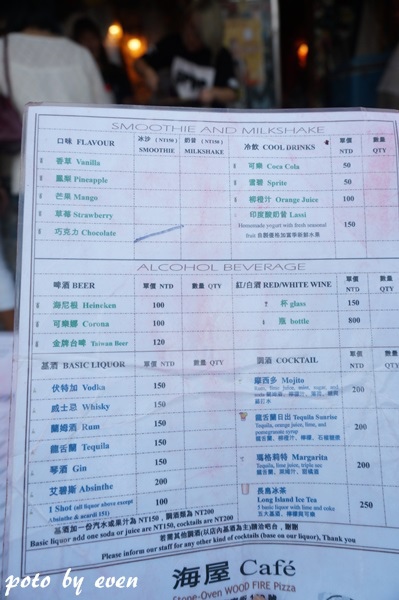 SMOOTHIE AND MILKSHAKE
口味 FLAVOUR 冰沙 ( NT150 ) SMOOTHIE 奶昔 ( NT150 ) MILKSHAKE
香草 Vanilla
鳳梨 Pineapple
芒果 Mango
草莓 Strawberry
巧克力 Chocolate
冷飲 COOL DRINKS 單價 NTD 數量 QTY
可樂 Coca Cola 50
雪碧 Sprite 50
柳橙汁 Orange Juice 100
印度酸奶昔 Lassi 150
Homemade yogurt with fresh seasonal
fruit
ALCOHOL BEVERAGE
啤酒 BEER 單價 NTD 數量 QTY
海尼根 Heineken 100
可樂娜 Corona 100
金牌台啤 Taiwan Beer 120
紅/白酒 RED/WHITE WINE 單價 NTD 數量 QTY
杯 glass 150
瓶 bottle 800
基酒 BASIC LIQUOR 單價 NTD 數量 QTY
伏特加 Vodka 150
威士忌 Whisky 150
蘭姆酒 Rum 150
龍舌蘭 Tequila 150
琴酒 Gin 150
艾碧斯 Absinthe 200
1 Shot (all liquor above except 100
Absinthe & acardi 151)
調酒 COCKTAIL 單價 NTD 數量 QTY
摩西多 Mojito 200
Rum, lime juice, mint, sugar, and
龍舌蘭日出 Tequila Sunrise 200
Tequila, orange juice, lime, and
pomegranate syrup
龍舌蘭、柳橙汁、檸檬、石榴糖漿
瑪格莉特 Margarita 200
Tequila, lime juice, triple sec
長島冰茶
Long Island Ice Tea 250
5 basic liquor with lime and coke
五大基酒、檸檬與可樂
基酒加一份汽水或果汁為NT150，調酒類為NT200
Basic liquor add one soda or juice are NT150, cocktails are NT200
若需其他調酒(以店內基酒為主)請洽吧台，謝謝
Please inform our staff for any other kind of cocktails (base on our liquor), Thank you
海屋 Café
Stone-Oven WOOD FIRE Pizza
poto by even